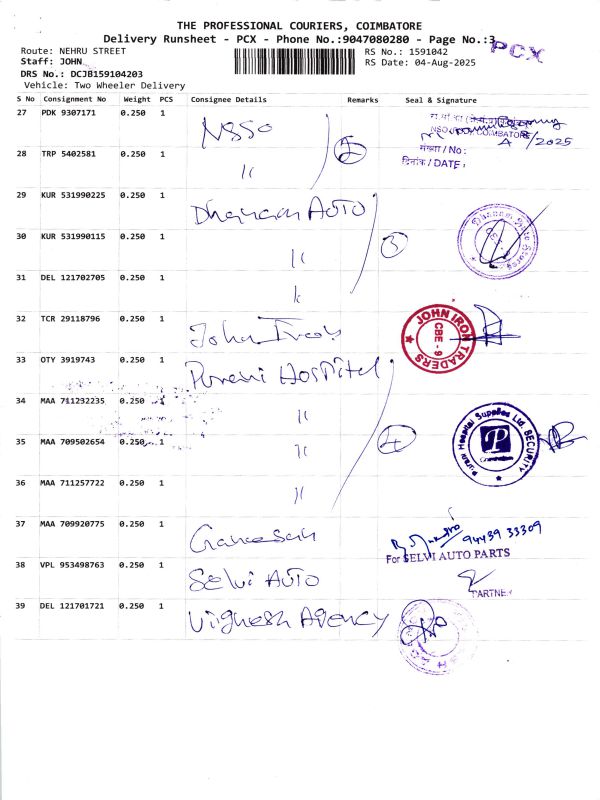 THE PROFESSIONAL COURIERS, COIMBATORE
Delivery Runsheet - PCX - Phone No.:9047080280 - Page No.:3
PCX
Route: NEHRU STREET
RS No.: 1591042
Staff: JOHN
RS Date: 04-Aug-2025
DRS No.: DCJB159104203
Vehicle: Two Wheeler Delivery
S No Consignment No Weight PCS Consignee Details Remarks Seal & Signature
27 PDK 9307171 0.250 1 NSSO
2
COIMBATORE
8/2025
संख्या / No :
दिनांक / DATE :
28 TRP 5402581 0.250 1 "
29 KUR 531990225 0.250 1 Dhanam AUTO
3
Dhanam Auto Stores
30 KUR 531990115 0.250 1 "
31 DEL 121702705 0.250 1 "
32 TCR 29118796 0.250 1 John Irons
JOHN IRON TRADERS
CBE - 9
33 OTY 3919743 0.250 1 Purani Hospital
34 MAA 711232235 0.250 1 "
4
Purani Hospital Supplies Ltd. SECURITY
P
35 MAA 709502654 0.250 1 "
36 MAA 711257722 0.250 1 "
37 MAA 709920775 0.250 1 Ganesan
94439 33309
For SELVI AUTO PARTS
38 VPL 953498763 0.250 1 Selvi AUTO
PARTNER
39 DEL 121701721 0.250 1 Vignesh Agency